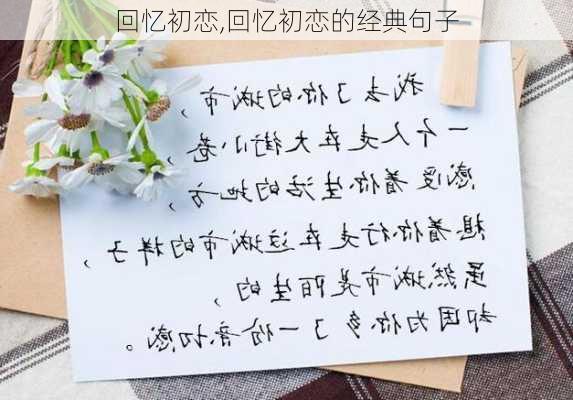 回忆初恋,回忆初恋的经典句子
我去了你的城市，
一个人走在大街小巷，
感受着你生活的地方，
想着你行走在这城市的样子，
虽然城市是陌生的，
却因为你多了一份亲切感。